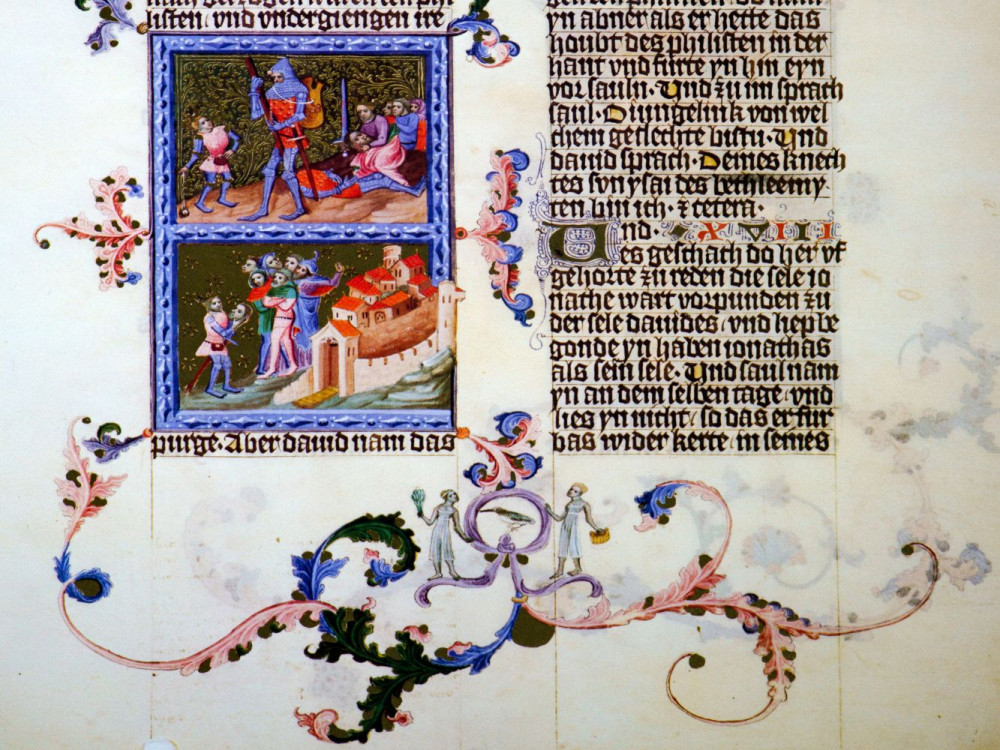 listen / vnd vndergiengen ire
purge · Aber dauid nam das
yn abner als er hette das
houbt des philisten in der
hant vnd furte yn hin eyn
vor sauln · Vnd zu im sprach
saul · O iungelink von wel
chem geslechte bistu · Vnd
dauid sprach · Deines knech
tes sun ysai des bethleemy-
ten bin ich · ⁊ cetera ·
Vnd · XVIII
es geschach do her vf
gehorte zu reden die sele io
nathe wart vorpunden zu
der sele dauides / vnd hepbe
gonde yn haben ionathas
als sein sele · Vnd saul nam
yn an dem selben tage / vnd
lies yn nicht / so das er fur
bas wider kerte in seines